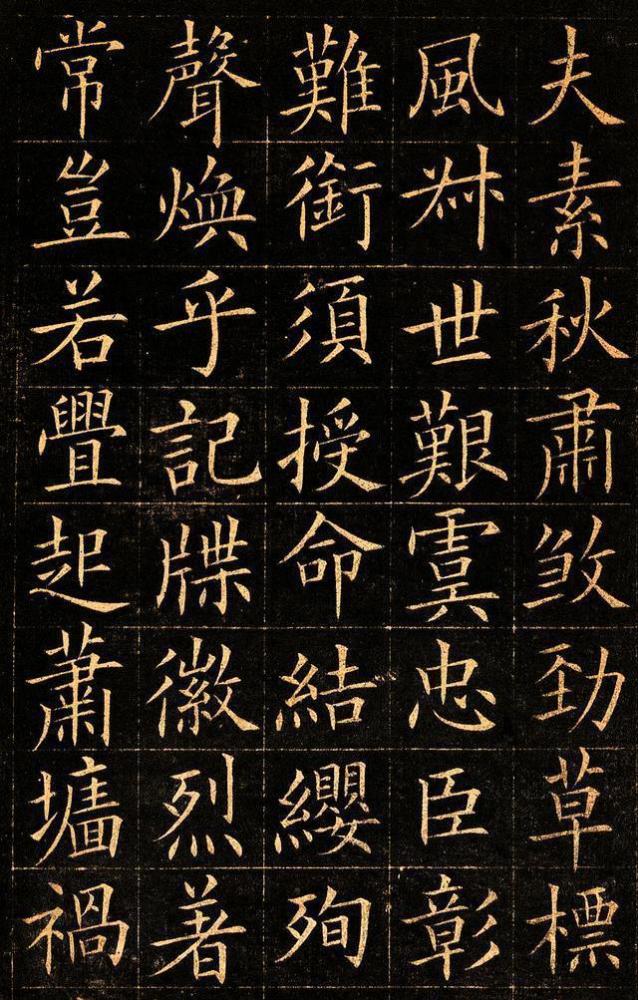 夫素秋肅煞勁草標
風叔世艱虞忠臣彰
難銜須授命結纓殉
聲煥乎記牒徽烈著
常豈若舋起蕭墻禍